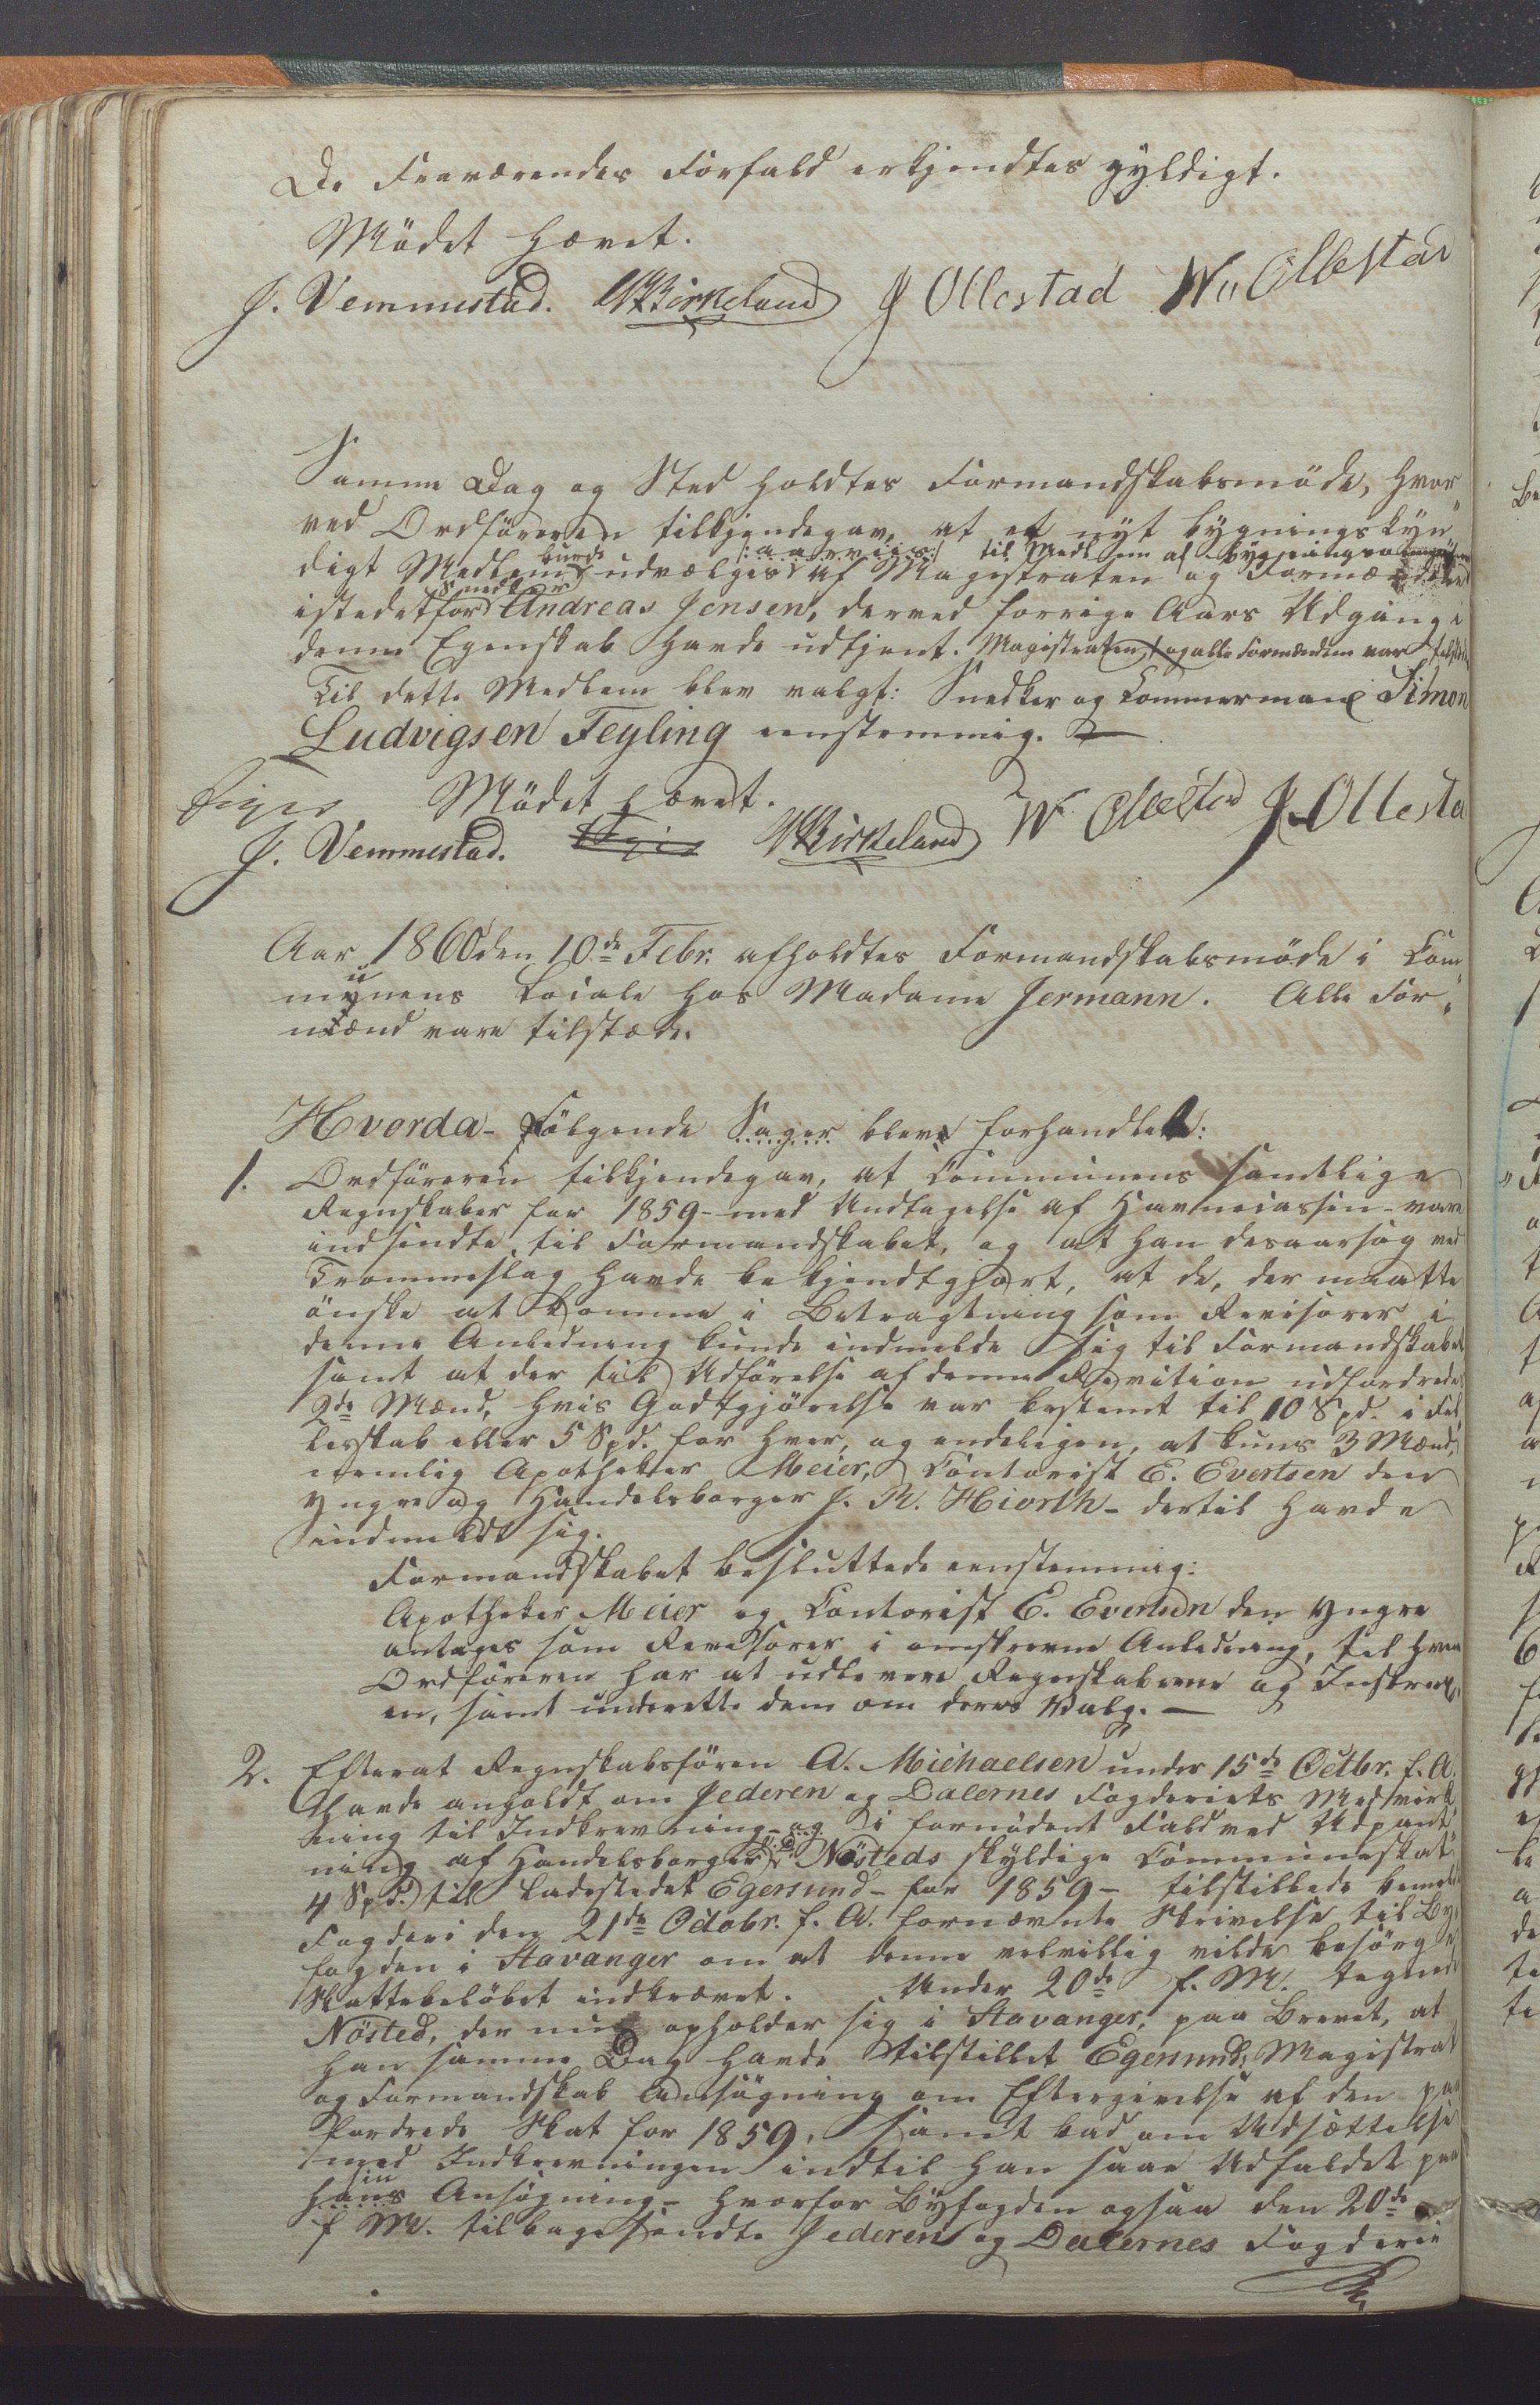 De Fraværendes Forfald erkjendtes gyldigt.
Mödet hævet.
J. Vemmestad. Birkeland J Ollestad W. Ollestad
Samme Dag og Sted holdtes Formandskabsmöde, hvor
ved Ordföreren tilkjendegav, at et nyt bygningskyn
burde /:aarviis:/ til Medlem af bygnings
digt Medlem udvælges af Magistraten og Formændene
Snedker
istedetfor Andreas Jensen, der ved forrige Aars Udgang i
denne Egenskab havde udtjent. Magistraten og alle Formændene var tilstæde
Til dette Medlem blev valgt: Snedker og Tommermand Simon
Ludvigsen Feyling eenstemmig.
Mödet hævet.
J. Vemmestad. Birkeland W Ollestad J. Ollesta
Aar 1860 den 10de Febr. afholdtes Formandskabsmöde i Com
munens Locale hos Madame Jermann. Alle For
mænd vare tilstæde.
Hvorda Fölgende Sager bleve forhandlet:
1. Ordföreren tilkjendegav, at Communens samtlige
Regnskaber for 1859 - med Undtagelse af Havnecassen - vare
indsendte til Formandskabet, og at han desaarsag ved
Trommeslag havde bekjendtgjort, at de, der maatte
önske at komme i Betragtning som Revisorer i
denne Anledning kunde indmelde sig til Formandskabet
samt at der til Udförelse af denne Revition udfordredes
2de Mænd, hvis Godtgjörelse var bestemt til 10 Spd. i Fel
lesskab eller 5 Spd. for hver, og endeligen, at kuns 3 Mænd,
nemlig Apotheker Meier, Contorist E. Evertsen den
yngre og Handelsborger J. M. Hiorth - dertil havde
indmeldt sig.
Formandskabet besluttede eenstemmig:
Apotheker Meier og Contorist E. Evertsen den yngre
antages som Revisorer i omskrevne Anledning, til hvem
Ordföreren har at udlevere Regnskaberne og
en, samt underrette dem om deres Valg. —
2. Efterat Regnskabsförer A. Michaelsen under 15de Octbr. f. A.
havde anholdt om Jederen og Dalernes Fogderiets Medvirk
ning til Indkrævning - og i fornödent Fald ved Udpant
ning af Handelsborger Nösteds skyldige Communeskat
4 Spd. til Ladestedet Egersund - for 1859 - tilstillede bemeldte
Fogderi den 21de Octobr. f. A. fornævnte Skrivelse til By
fogden i Stavanger om at denne velvillig vilde besörge
Skattebelöbet indkrævet. Under 20de f. M. tegnede
Nösted, der nu opholder sig i Stavanger, paa Brevet, at
han samme Dag havde tilstillet Egersunds Magistrat
og Formandskab Ansögning om Eftergivelse af den paa
fordrede Skat for 1859, samt bad om Udsættelse
med Indkrævningen indtil han saae Udfaldet paa
sin
hans Ansögning - hvorfor Byfogden ogsaa den 20de
f. M. tilbagesendte Jederen og Dalernes Fogderie